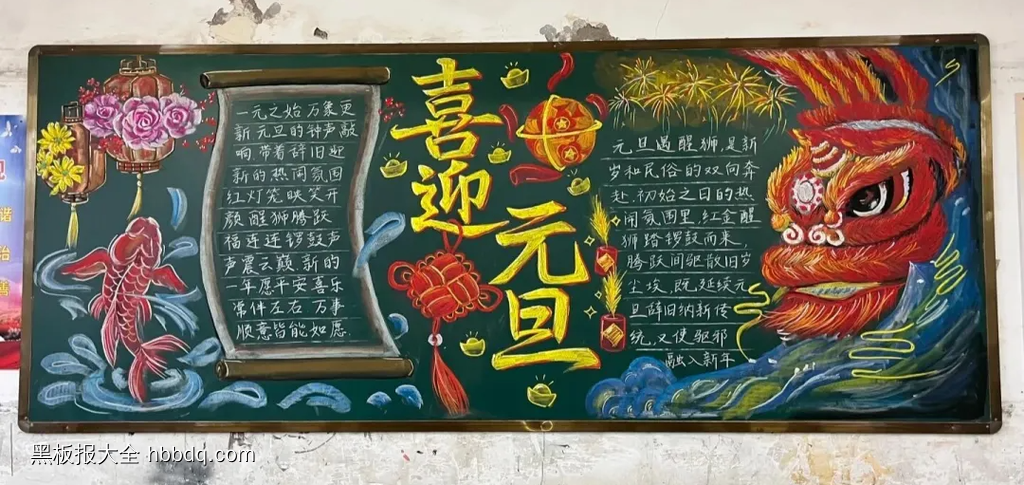 一元之始万象更
新元旦的钟声敲
响带着辞旧迎
新的热闹氛围
红灯笼映笑开
颜醒狮腾跃
福连连锣鼓声
声震云巅新的
一年愿平安喜乐
常伴左右万事
顺意皆能如愿
喜迎
元旦
元旦遇醒狮,是新
岁和民俗的双向奔
赴.初始之日的热
闹氛围里,红金醒
狮踏锣鼓而来,
腾跃间驱散旧岁
尘埃,既延续元
旦辞旧纳新传
统,又使驱邪
融入新年
黑板报大全 hbbdq.com